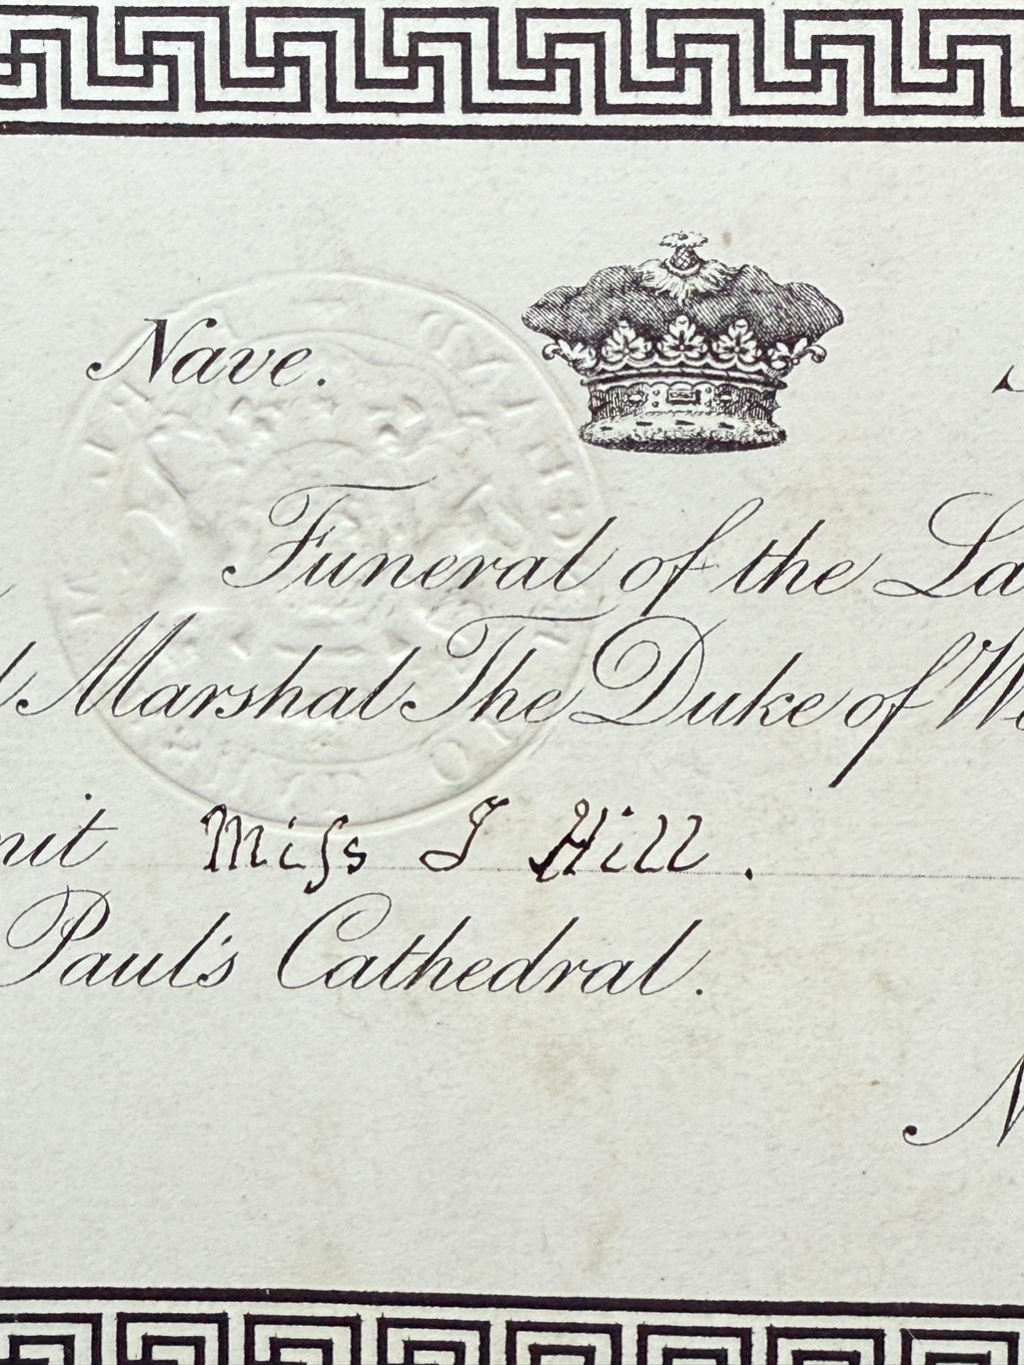 Nave.
Funeral of the La
Marshal The Duke of W
mit Miſs J Hill.
Paul's Cathedral.
N